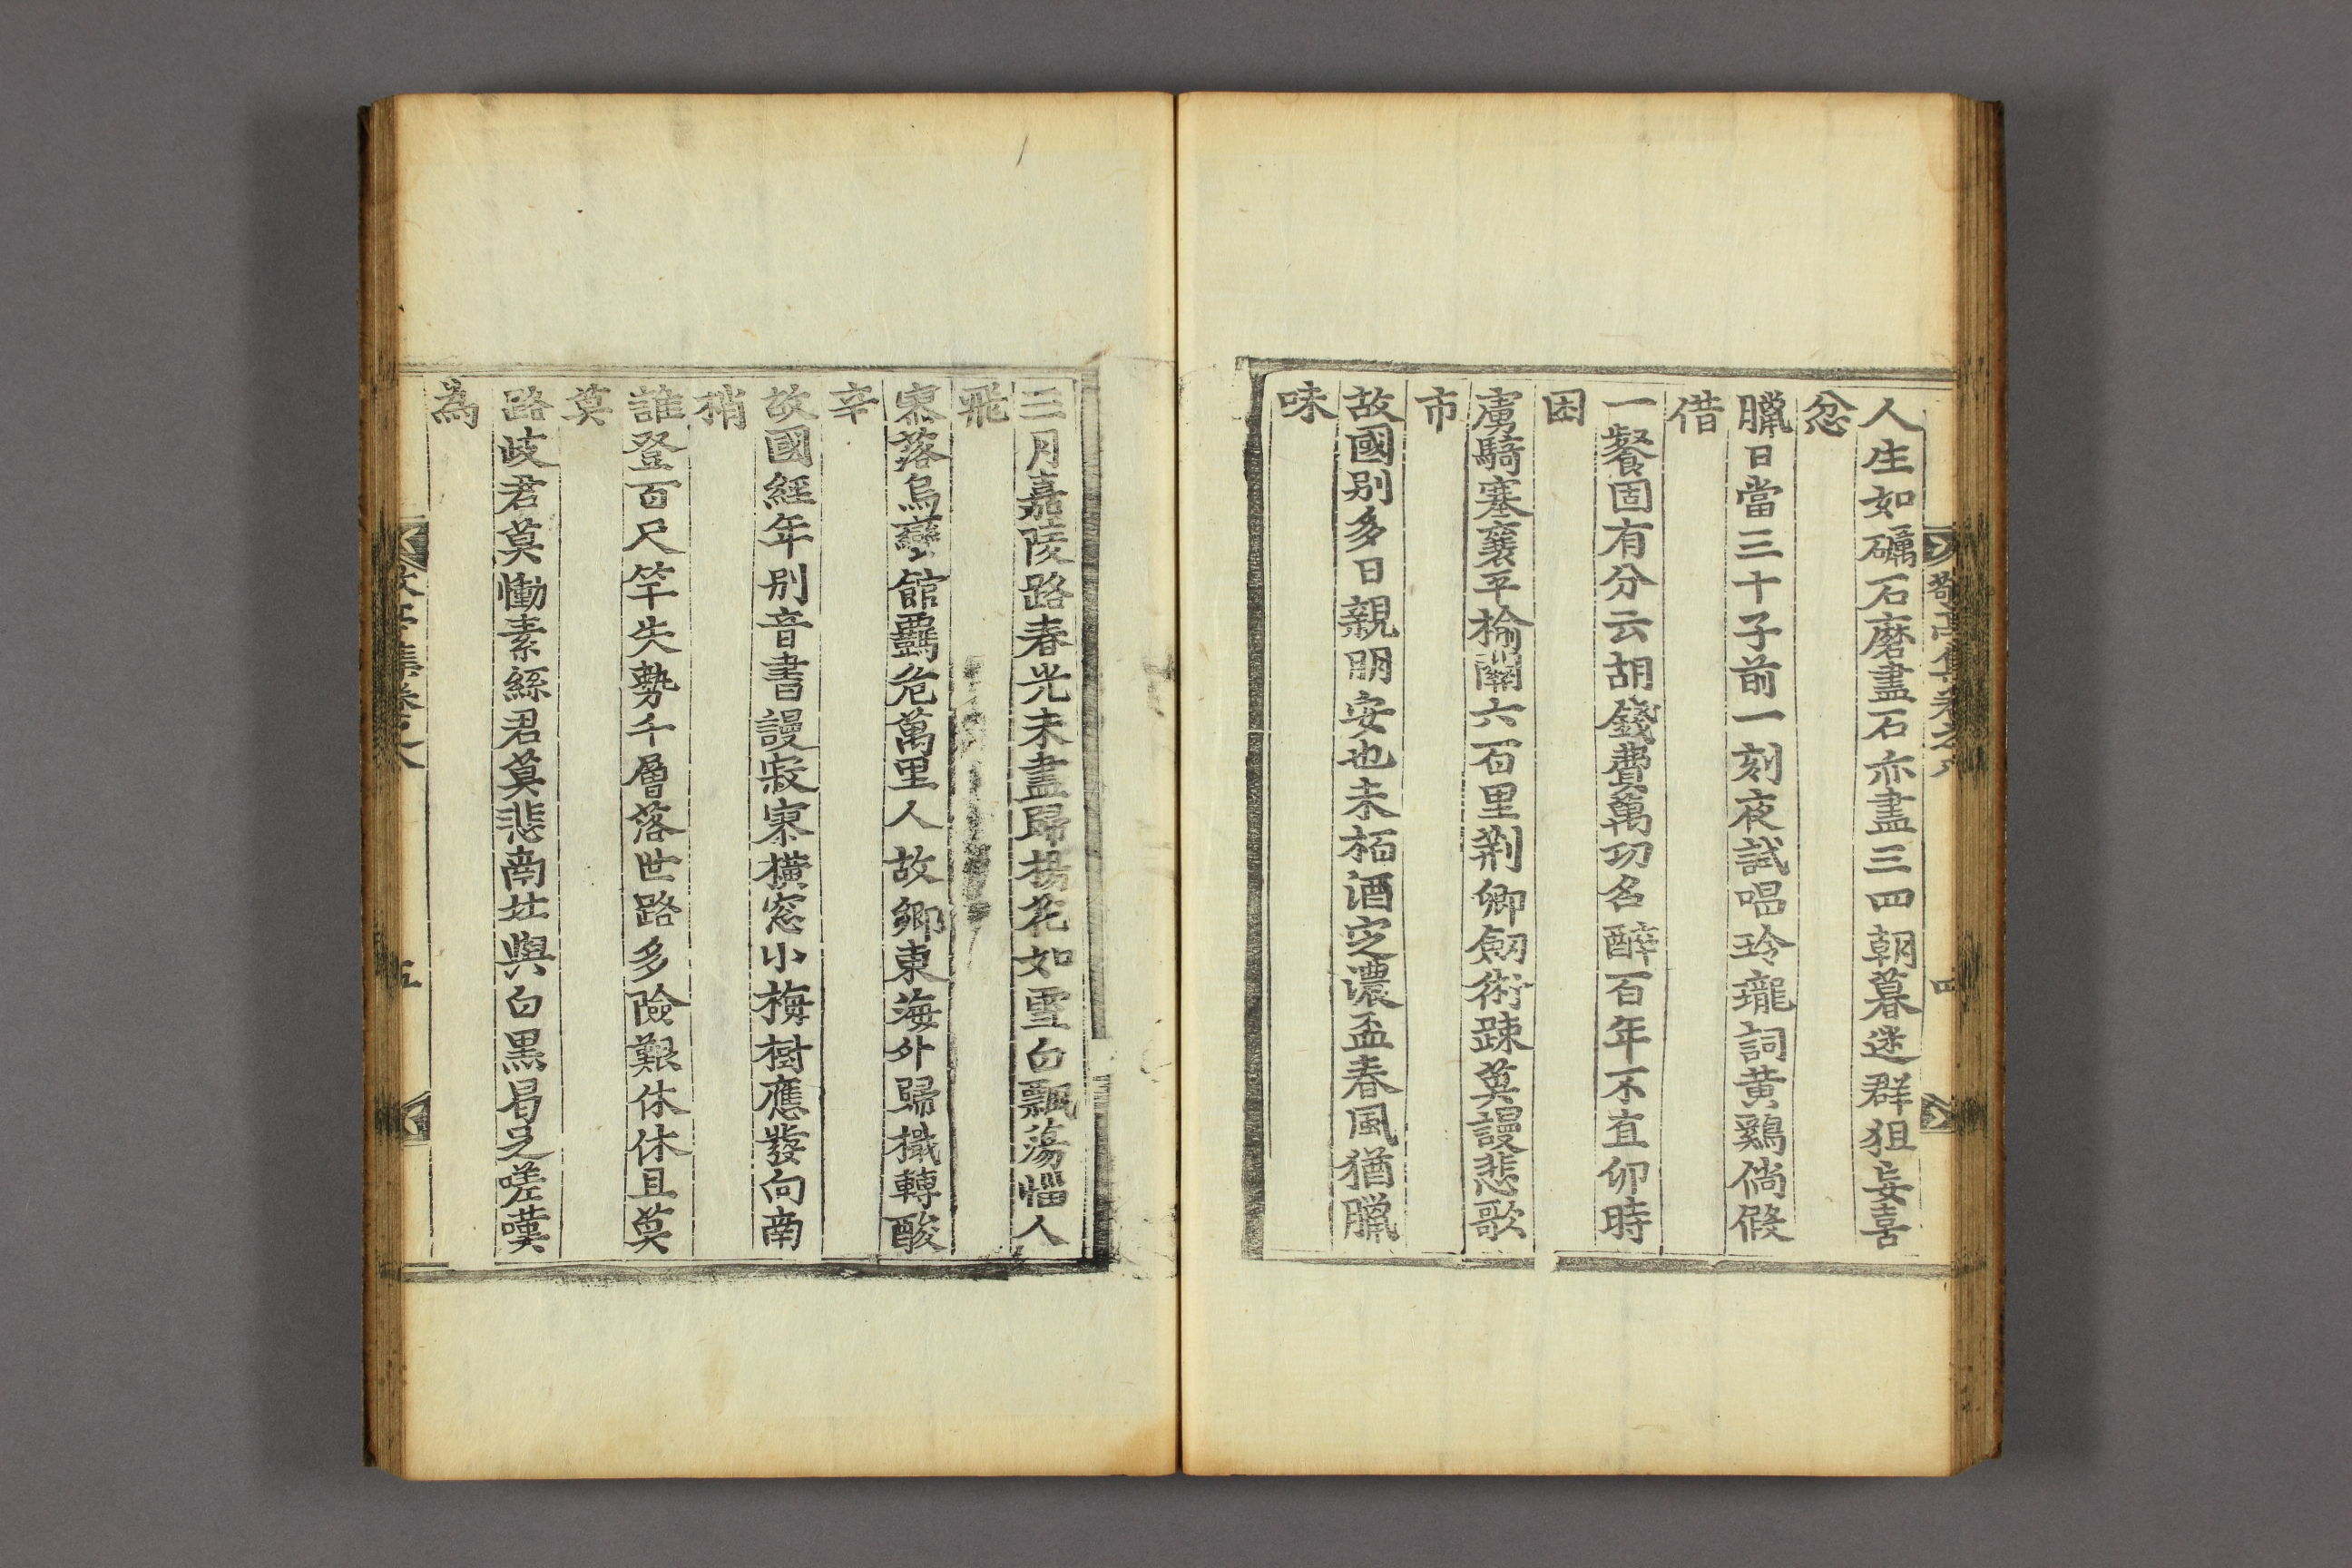 人生如礪石磨盡石亦盡三四朝暮迷群狙妄喜
忿
臘日當三十子前一刻夜試唱玲瓏詞黄鷄倘假
借
一餐固有分云胡錢費萬功名醉百年不直卯時
困
虜騎塞襄平楡關六百里荆卿劒術踈莫謾悲歌
市
故國别多日親朋安也未栢酒定濃盃春風猶臘
味
三月嘉陵路春光未盡歸楊花如雪白飄蕩惱人
飛
寥落烏蠻館覊危萬里人故鄉東海外歸檝轉酸
辛
故國經年别音書謾寂寥横窓小梅樹應發向南
梢
誰登百尺竿失勢千層落世路多險艱休休且莫
莫
路歧君莫慟素絲君莫悲南北與白黒曷足嗟嘆
為